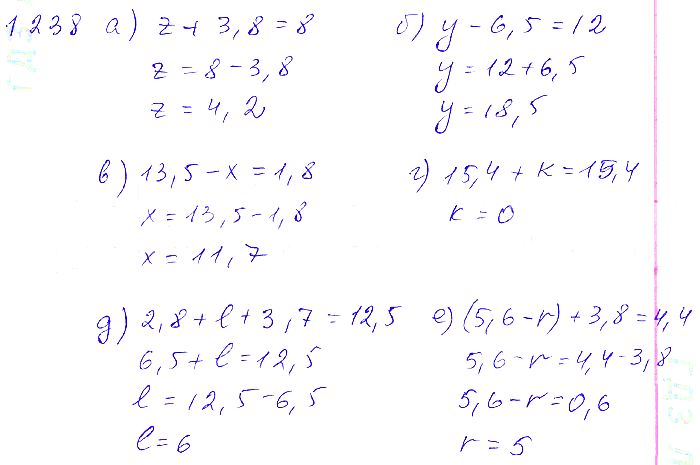 1.238 а) z + 3,8 = 8
z = 8 - 3,8
z = 4,2
б) y - 6,5 = 12
y = 12 + 6,5
y = 18,5
в) 13,5 - x = 1,8
x = 13,5 - 1,8
x = 11,7
г) 15,4 + k = 15,4
k = 0
д) 2,8 + l + 3,7 = 12,5
6,5 + l = 12,5
l = 12,5 - 6,5
l = 6
е) (5,6 - r) + 3,8 = 4,4
5,6 - r = 4,4 - 3,8
5,6 - r = 0,6
r = 5